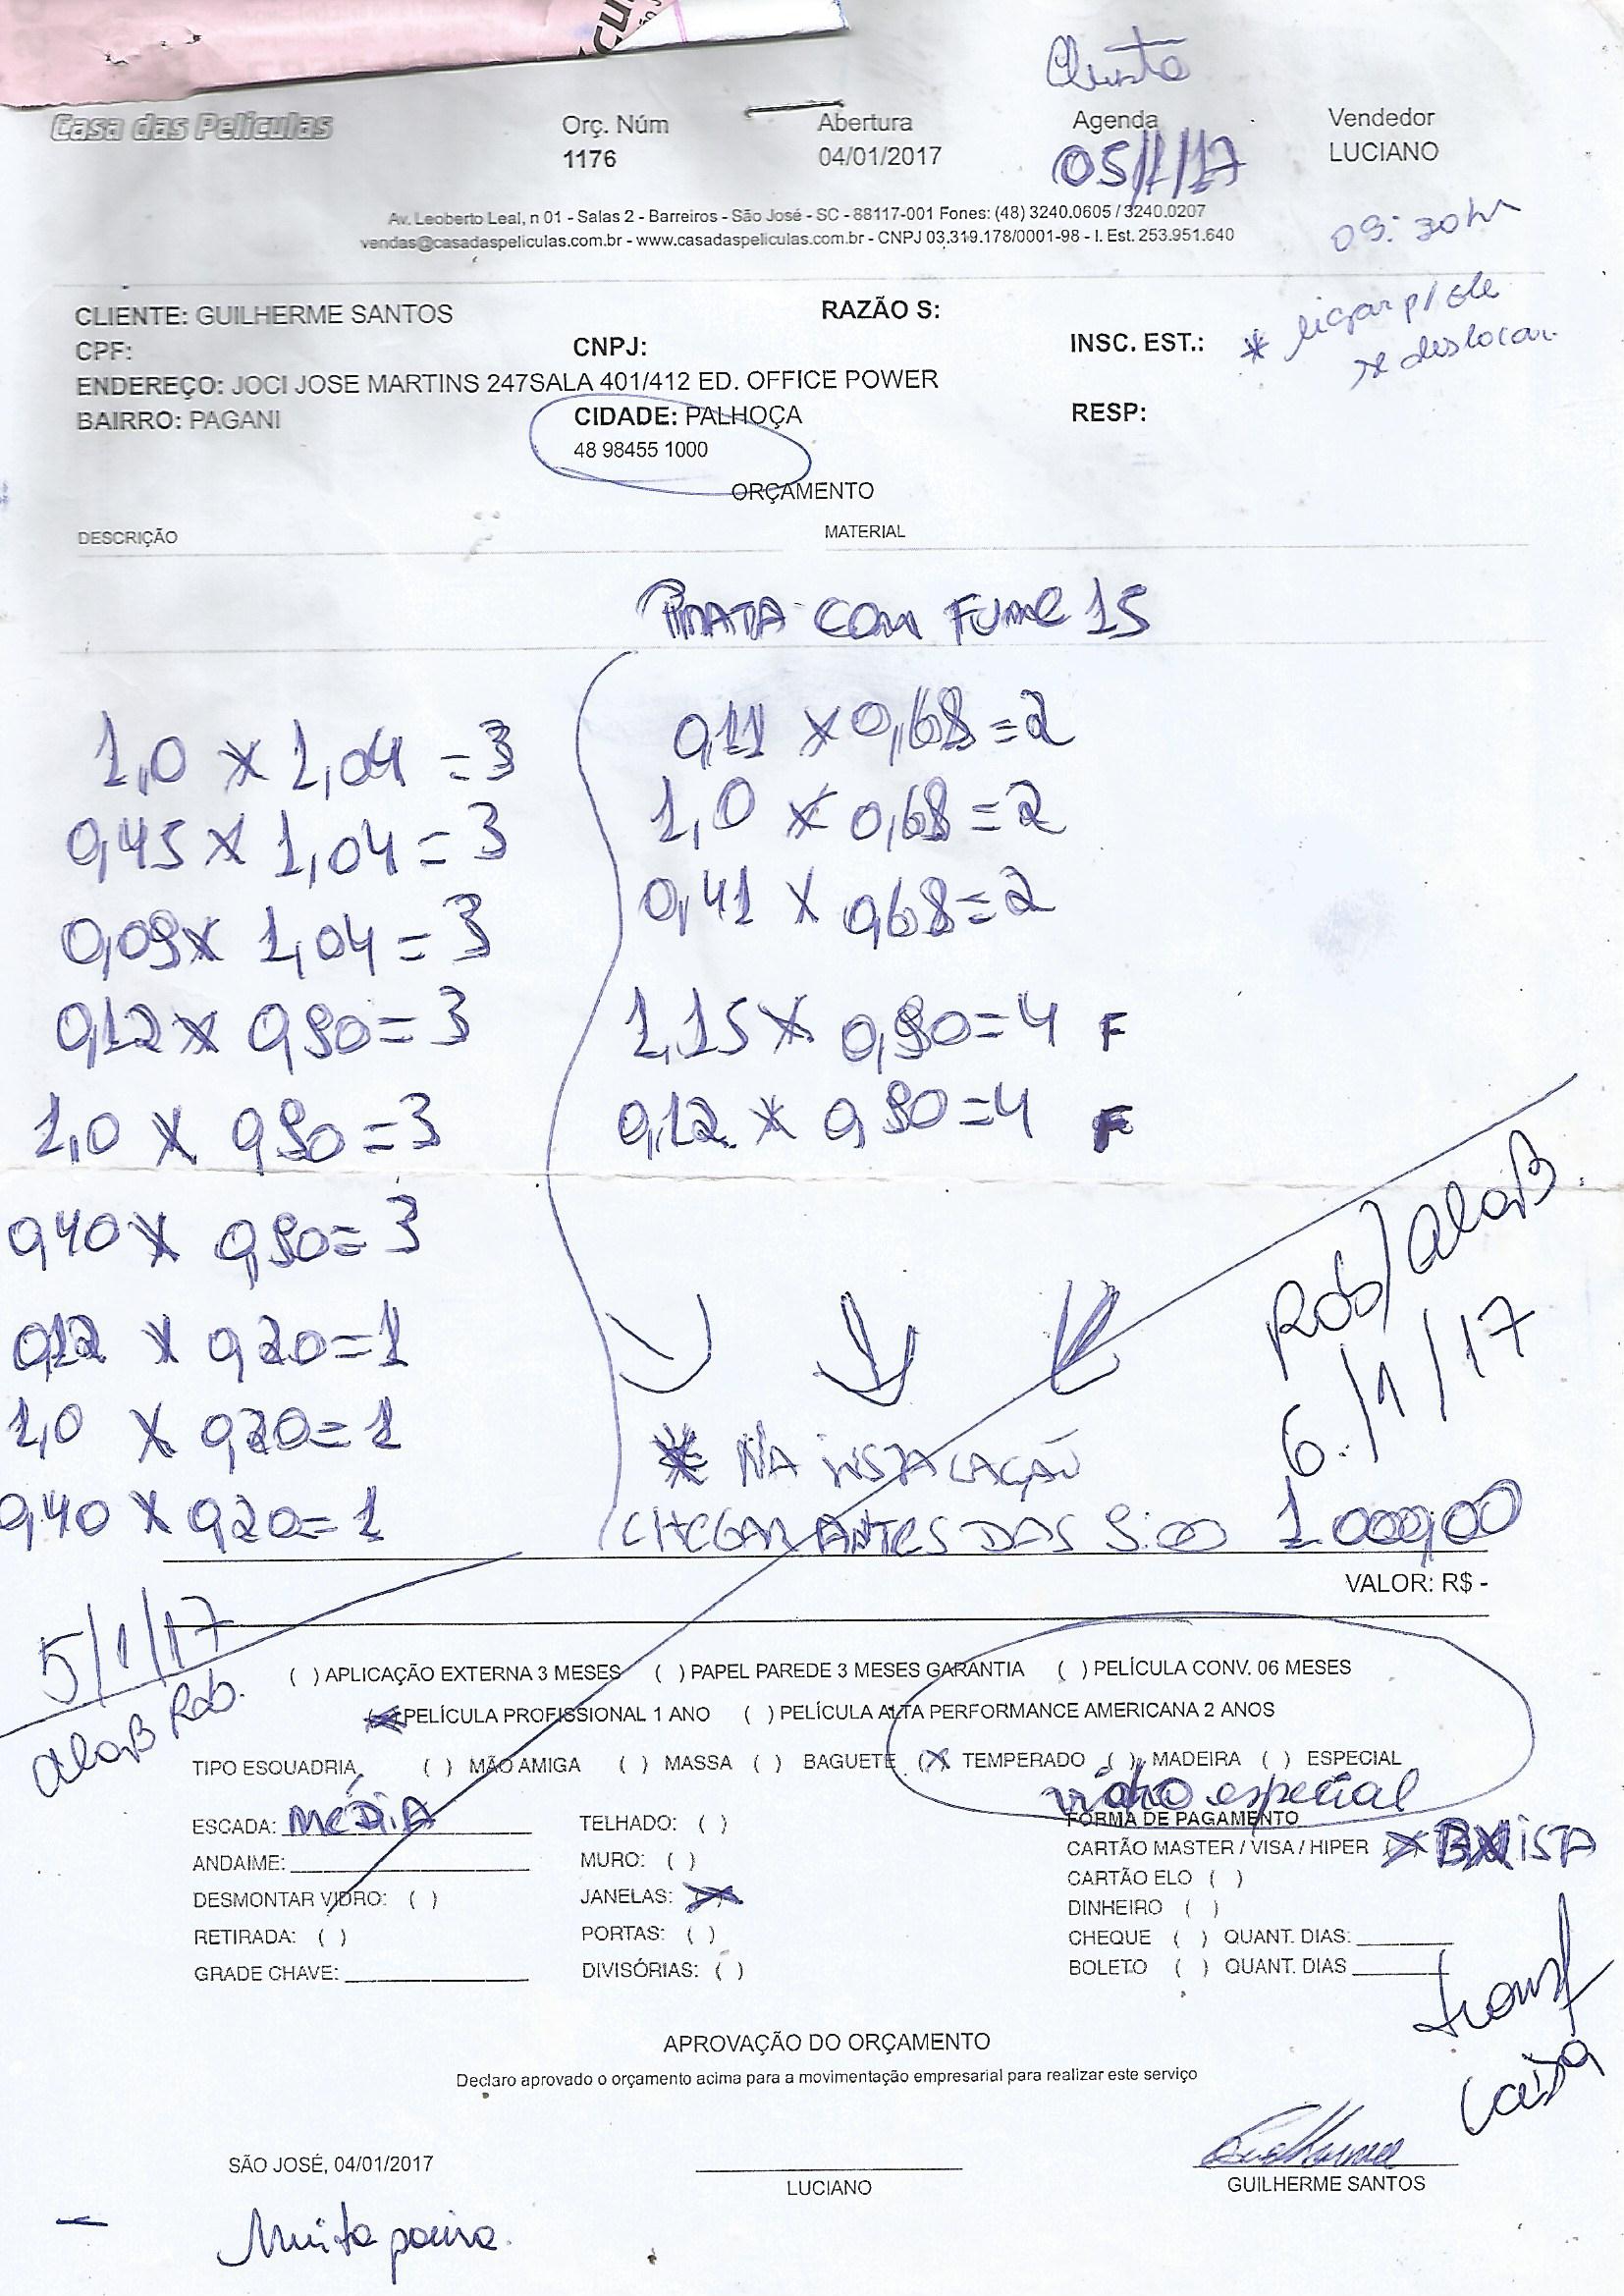 Quinta
Casa das Películas
Orç. Núm
1176
Abertura
04/01/2017
Agenda
05/1/17
Vendedor
LUCIANO
Av. Leoberto Leal, n 01 - Salas 2 - Barreiros - São José - SC - 88117-001 Fones: (48) 3240.0605 / 3240.0207
vendas@casadaspeliculas.com.br - www.casadaspeliculas.com.br - CNPJ 03.319.178/0001-98 - I. Est. 253.951.640
09:30hr
* ligar p/ ele
se deslocar.
CLIENTE: GUILHERME SANTOS
RAZÃO S:
CPF:
CNPJ:
INSC. EST.:
ENDEREÇO: JOCI JOSE MARTINS 247SALA 401/412 ED. OFFICE POWER
BAIRRO: PAGANI
CIDADE: PALHOÇA
RESP:
48 98455 1000
ORÇAMENTO
DESCRIÇÃO
MATERIAL
PRATA COM FUME 15
1,0 x 1,04 = 3
0,45 x 1,04 = 3
0,09 x 1,04 = 3
0,12 x 0,90 = 3
1,0 x 0,90 = 3
0,40 x 0,90 = 3
0,12 x 0,20 = 1
1,0 x 0,20 = 1
0,40 x 0,20 = 1
0,11 x 0,68 = 2
1,0 x 0,68 = 2
0,41 x 0,68 = 2
1,15 x 0,90 = 4 F
0,12 x 0,90 = 4 F
Rob/AlaB.
6/1/17
* NA INSTALAÇÃO
CHEGAR ANTES DAS 9:00
1000,00
VALOR: R$ -
5/1/17
AlaB Rob.
( ) APLICAÇÃO EXTERNA 3 MESES ( ) PAPEL PAREDE 3 MESES GARANTIA ( ) PELÍCULA CONV. 06 MESES
(X) PELÍCULA PROFISSIONAL 1 ANO ( ) PELÍCULA ALTA PERFORMANCE AMERICANA 2 ANOS
TIPO ESQUADRIA ( ) MÃO AMIGA ( ) MASSA ( ) BAGUETE (X) TEMPERADO ( ) MADEIRA ( ) ESPECIAL
vidro especial
ESCADA: MÉDIA
TELHADO: ( )
FORMA DE PAGAMENTO
ANDAIME:
MURO: ( )
CARTÃO MASTER / VISA / HIPER (X) VISTA
CARTÃO ELO ( )
DESMONTAR VIDRO: ( )
JANELAS: (X)
DINHEIRO ( )
RETIRADA: ( )
PORTAS: ( )
CHEQUE ( ) QUANT. DIAS:
GRADE CHAVE:
DIVISÓRIAS: ( )
BOLETO ( ) QUANT. DIAS
transf
caixa
APROVAÇÃO DO ORÇAMENTO
Declaro aprovado o orçamento acima para a movimentação empresarial para realizar este serviço
SÃO JOSÉ, 04/01/2017
LUCIANO
Guilherme
GUILHERME SANTOS
Muita poeira.